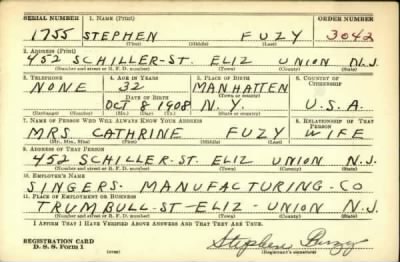 SERIAL NUMBER 1. NAME (Print) ORDER NUMBER
1755 STEPHEN FUZY 3042
(First) (Middle) (Last)
2. ADDRESS (Print)
452 SCHILLER-ST. ELIZ UNION N.J.
(Number and street or R. F. D. number) (Town) (County) (State)
3. TELEPHONE 4. AGE IN YEARS 5. PLACE OF BIRTH 6. COUNTRY OF CITIZENSHIP
NONE 32 MANHATTEN
DATE OF BIRTH (Town or county)
OCT 8 1908 N.Y. U.S.A.
(Exchange) (Number) (Mo.) (Day) (Yr.) (State or country)
7. NAME OF PERSON WHO WILL ALWAYS KNOW YOUR ADDRESS 8. RELATIONSHIP OF THAT PERSON
MRS. CATHRINE FUZY WIFE
(Mr., Mrs., Miss) (First) (Middle) (Last)
9. ADDRESS OF THAT PERSON
452 SCHILLER-ST ELIZ UNION N.J.
(Number and street or R. F. D. number) (Town) (County) (State)
10. EMPLOYER'S NAME
SINGERS. MANUFACTURING-CO
11. PLACE OF EMPLOYMENT OR BUSINESS
TRUMBULL-ST-ELIZ-UNION N.J.
(Number and street or R. F. D. number) (Town) (County) (State)
I AFFIRM THAT I HAVE VERIFIED ABOVE ANSWERS AND THAT THEY ARE TRUE.
REGISTRATION CARD
D. S. S. Form 1 (over) Stephen Fuzy
(Registrant's signature)